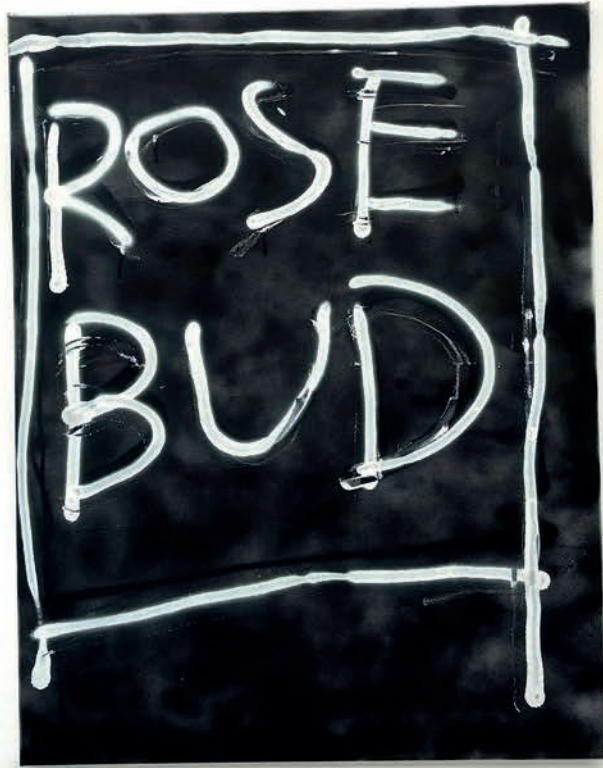 ROSE
BUD